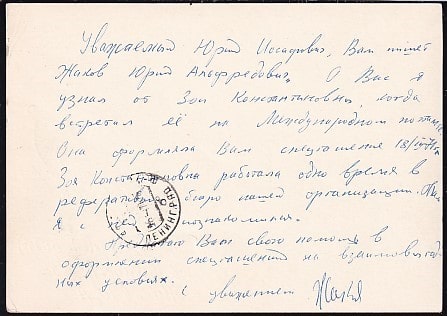 Уважаемый Юрий Иосифович, Вам пишет
Жаков Юрий Альфредович. О Вас я
узнал от Зои Константиновны, когда
встретал её на Международном
Она оформляла Вам спецгашения
Зоя Константиновна работала одно время в
бюро нашей организации.
я с ней и познакомился.
Предлагаю Вам свою помощь в
оформлении спецгашений на взаимовыгод
ных условиях.
с уважением Жаков
ЛЕНИНГРАД